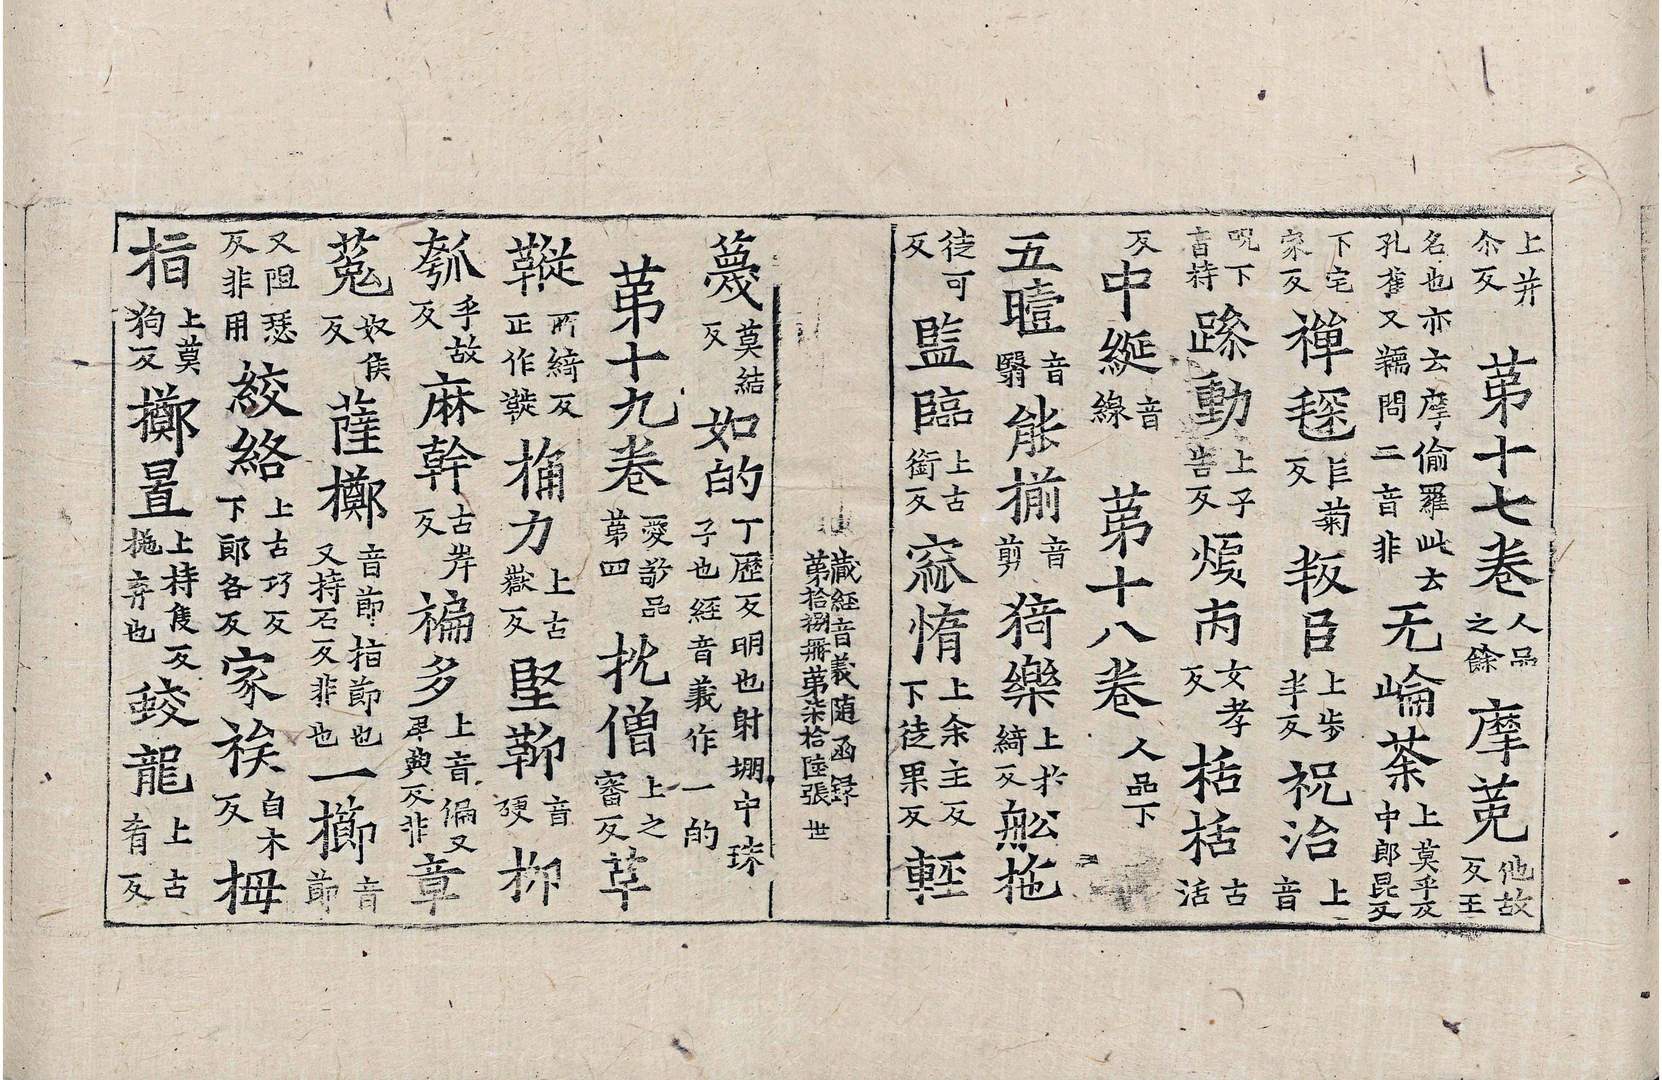 上并尒反第十七卷人品之餘摩菟他故反王
名也亦云摩偷羅此云孔雀又䅖問二音非无崘荼上莫乎反中郎昆反
下宅家反禅毱反丘菊叛臣上步半反祝治上音
呪下音持蹂動上子告反煩丙女孝反栝栝古活
反中綖音線第十八卷人品下
五曀音翳能揃音剪猗樂上於綺反舩拖
徒可反監臨上古銜反窳惰上余主反下徒果反輕
藏經音義隨函録
第拾捌冊第柒拾陸張世
篾莫結反如的丁歷反明也射堋中珠子也經音義作一的
第十九卷愛敬品第四抌僧上之審反草
鞾所綺反正作鞾捔力上古嶽反堅鞕音硬柳
瓠乎故反麻幹古岸反褊多上音偏又卑典反非章
菟奴侯反薩擲音節指節也又持石反非也一擳音節
又阻瑟反非用絞絡上古巧反下郎各反家祑自木反栂
指上莫狗反擲置上持隻反拖弃也蛟龍上古肴反